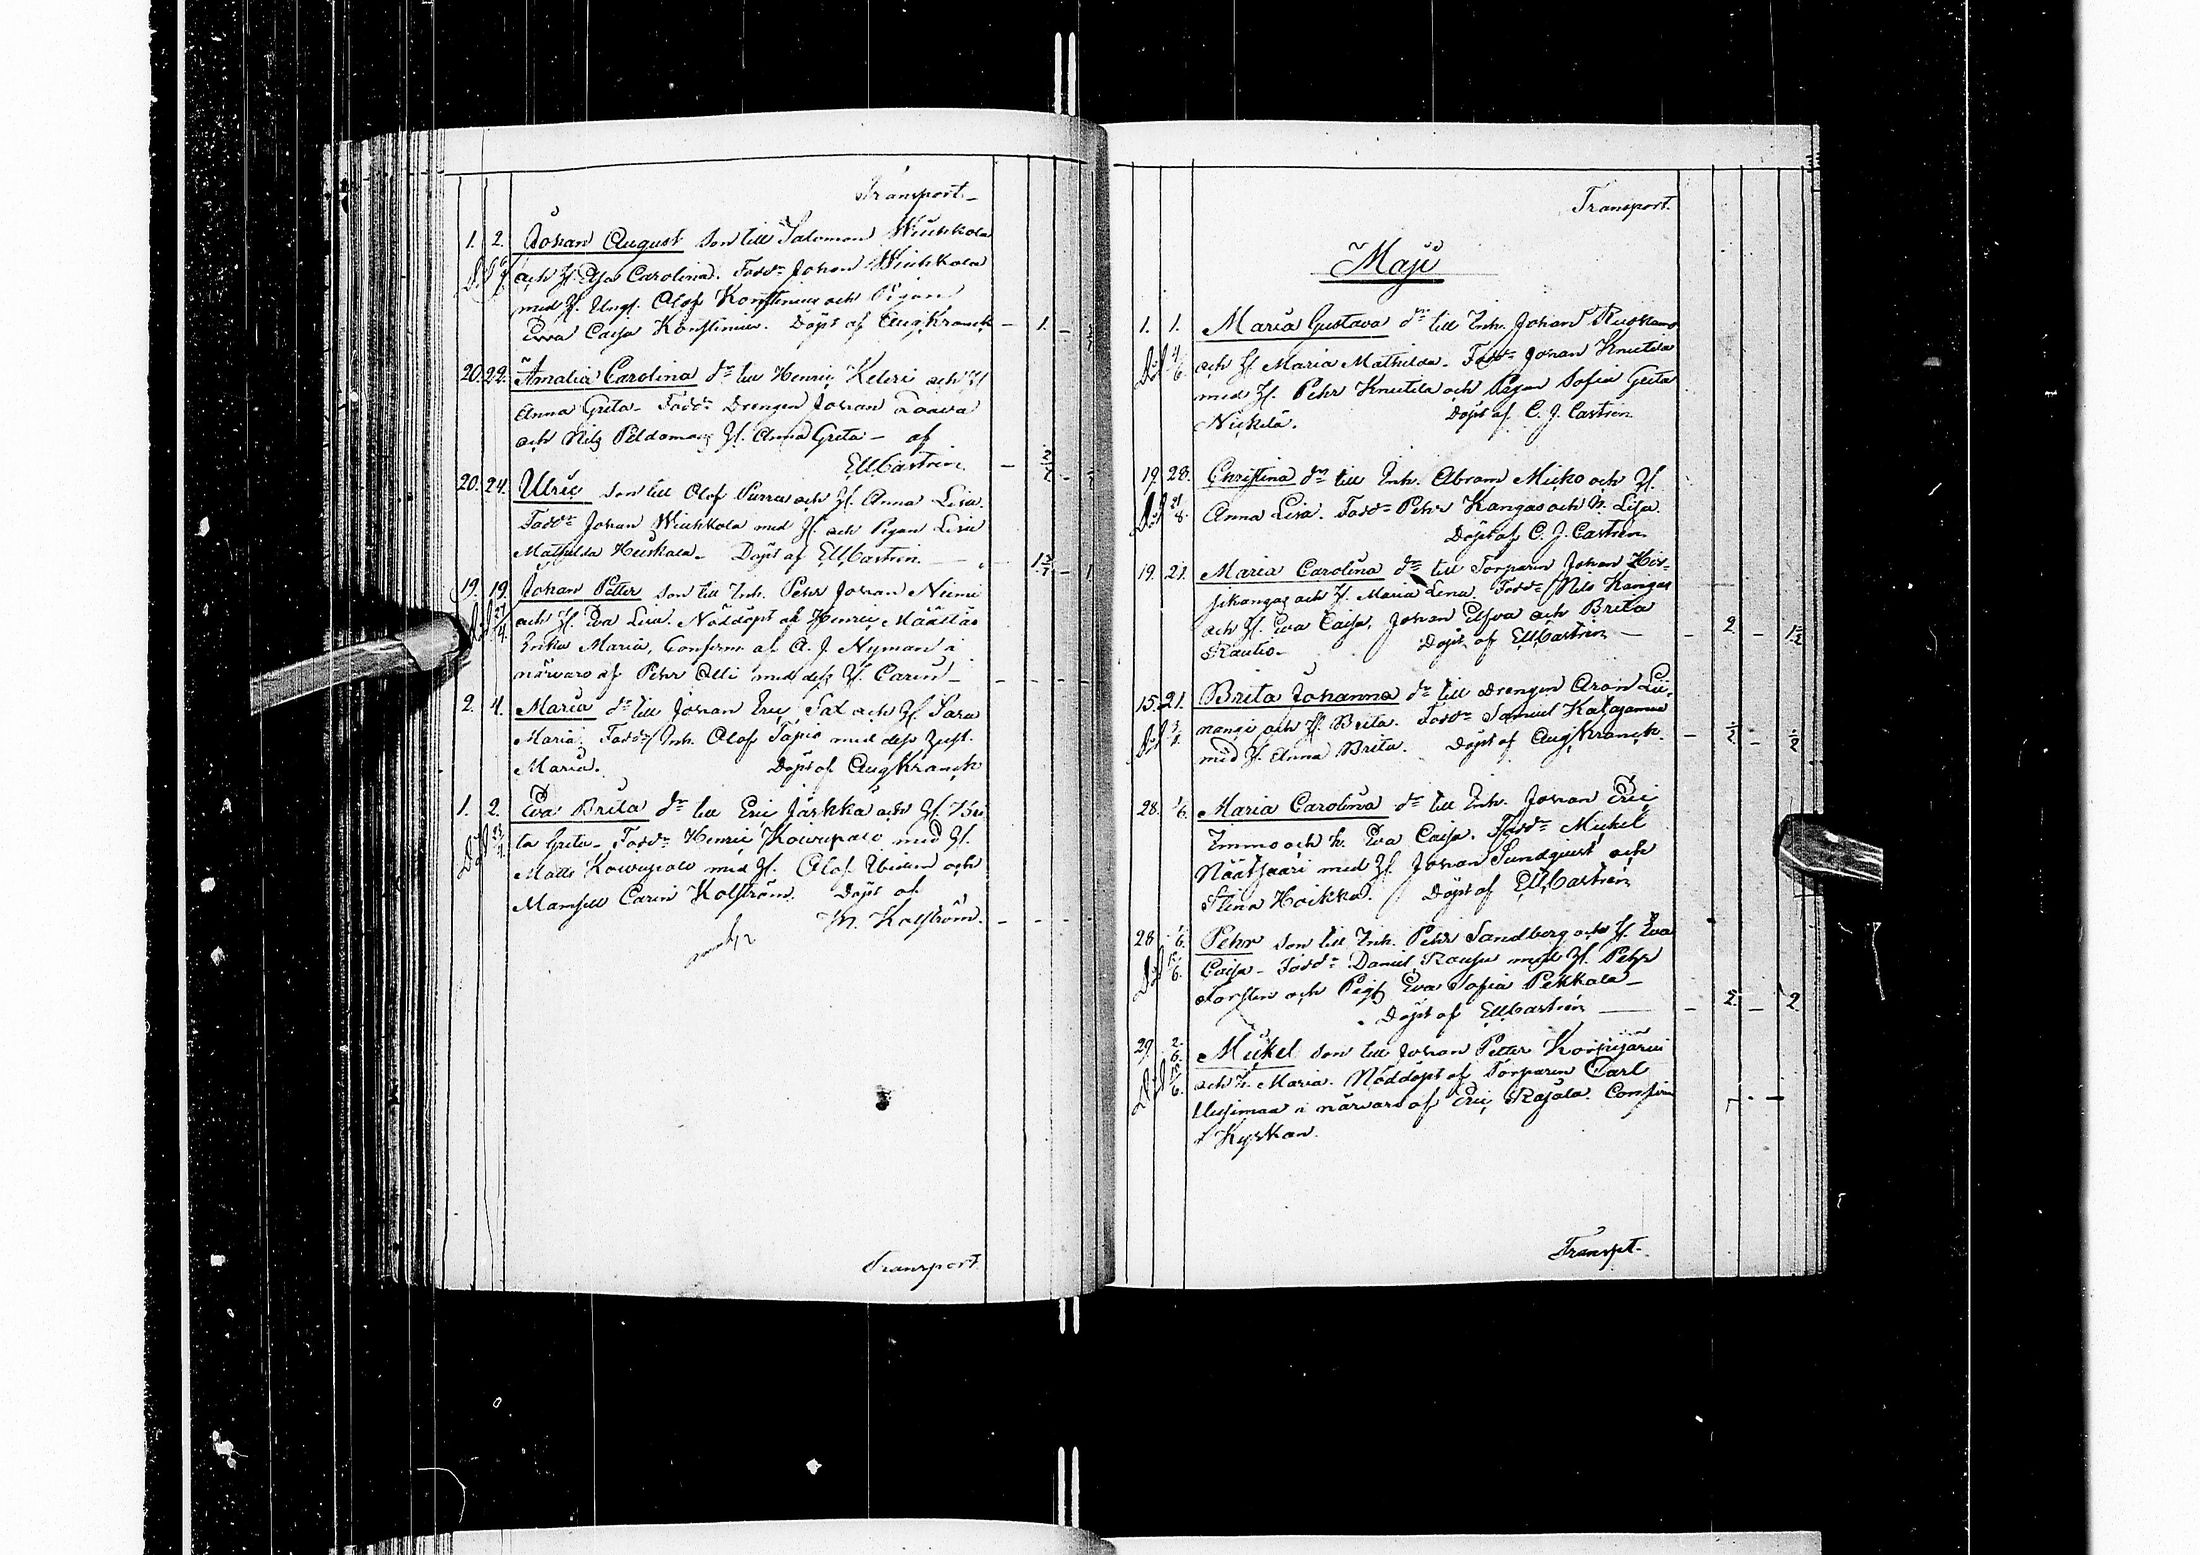 Transport.
1. 2. Johan August son till Salomon Wiuhkola
och H. Caisa Carolina. Fadd. Johan Wiuhkola
med H. Ungk. Olof Konstenius och Pigan
Ewa Caisa Konstenius. Döpt af Aug Kranck – 1. –
20. 22. Amalia Carolina dr till Henric Keleri och H
Anna Greta – Fadd. Drengen Johan Laava
och Nils Peldomaa H. Anna Greta – af
EMCastrén –
20. 24. Ulric son till Olof Purra och H. Anna Lisa.
Fadd. Johan Wiuhkola med H. och Pigan Lisa
Mathilda Heiskala – Döpt af EMCastrén.
19. 19. Johan Petter son till Inh. Pehr Johan Niemi
Död 27/4. och H. Eva Lisa. Nöddöpt af Henric Määttäs
Enka Maria, Confirm. af A. J. Nyman i
närvaro af Pehr Olli med dess H. Carin –
2. 4. Maria dr till Johan Eric Sax och H. Sara
Maria. Fadd. Inh. Olof Tapio med dess Hust.
Maria. Döpt af Aug Kranck
1. 2. Eva Brita dr till Eric Jaskka och H. Bri
Död ta Greta – Fadd. Henric Koivupalo med H.
Matts Koivupalo med H. Olof and och
Mamsell Carin Kolström. Döpt af
M. Kolström.
Transport
Transport.
Maji
1. 1. Maria Gustava dr till Inh. Johan Ruokanen
Död och H Maria Mathilda – Fadd. Johan Knutila
med H. Pehr Knutila och Pigan Sofia Greta
Niskela. Döpt af C. J. Castrén
19. 23. Christina dr till Inh. Abram Micko och H.
Död Anna Lisa. Fadd. Pehr Kangas och H. Lisa.
Döpt af C. J. Castrén
19. 21. Maria Carolina dr till Torparen Johan His-
sikangas och H. Maria Lena. Fadd. Nils Kangas
och H. Eva Caisa, Johan och Brita
Rautio – Döpt af EMCastrén – – 2 –
15. 21. Brita Johanna dr till Drengen Aron Lii-
Död nangi och H. Brita. Fadd. Samuel Katajamaa
med H. Anna Brita. Döpt af Aug Kranck. –
28. 1/6. Maria Carolina dr till Inh. Johan Eric
Immo och H. Eva Caisa. Fadd. Mickel
Näätsaari med H Johan Sundquist och
Stina Hoikka. Döpt af EMCastrén
28 1/6. Pehr son till Inh. Pehr Sandberg och H. Eva
Död Caisa – Fadd. Daniel med H. Pehr
Torsten och Pig. Eva Sofia Pekkala –
Döpt af EMCastrén – – 2 – 2
29. 2/6. Mickel son till Johan Petter Korpijärvi
Död och H. Maria. Nöddöpt af Torparen Carl
Uusimaa i närvaro af Eric Rajala. Confirm
i Kyrkan.
Transpt.